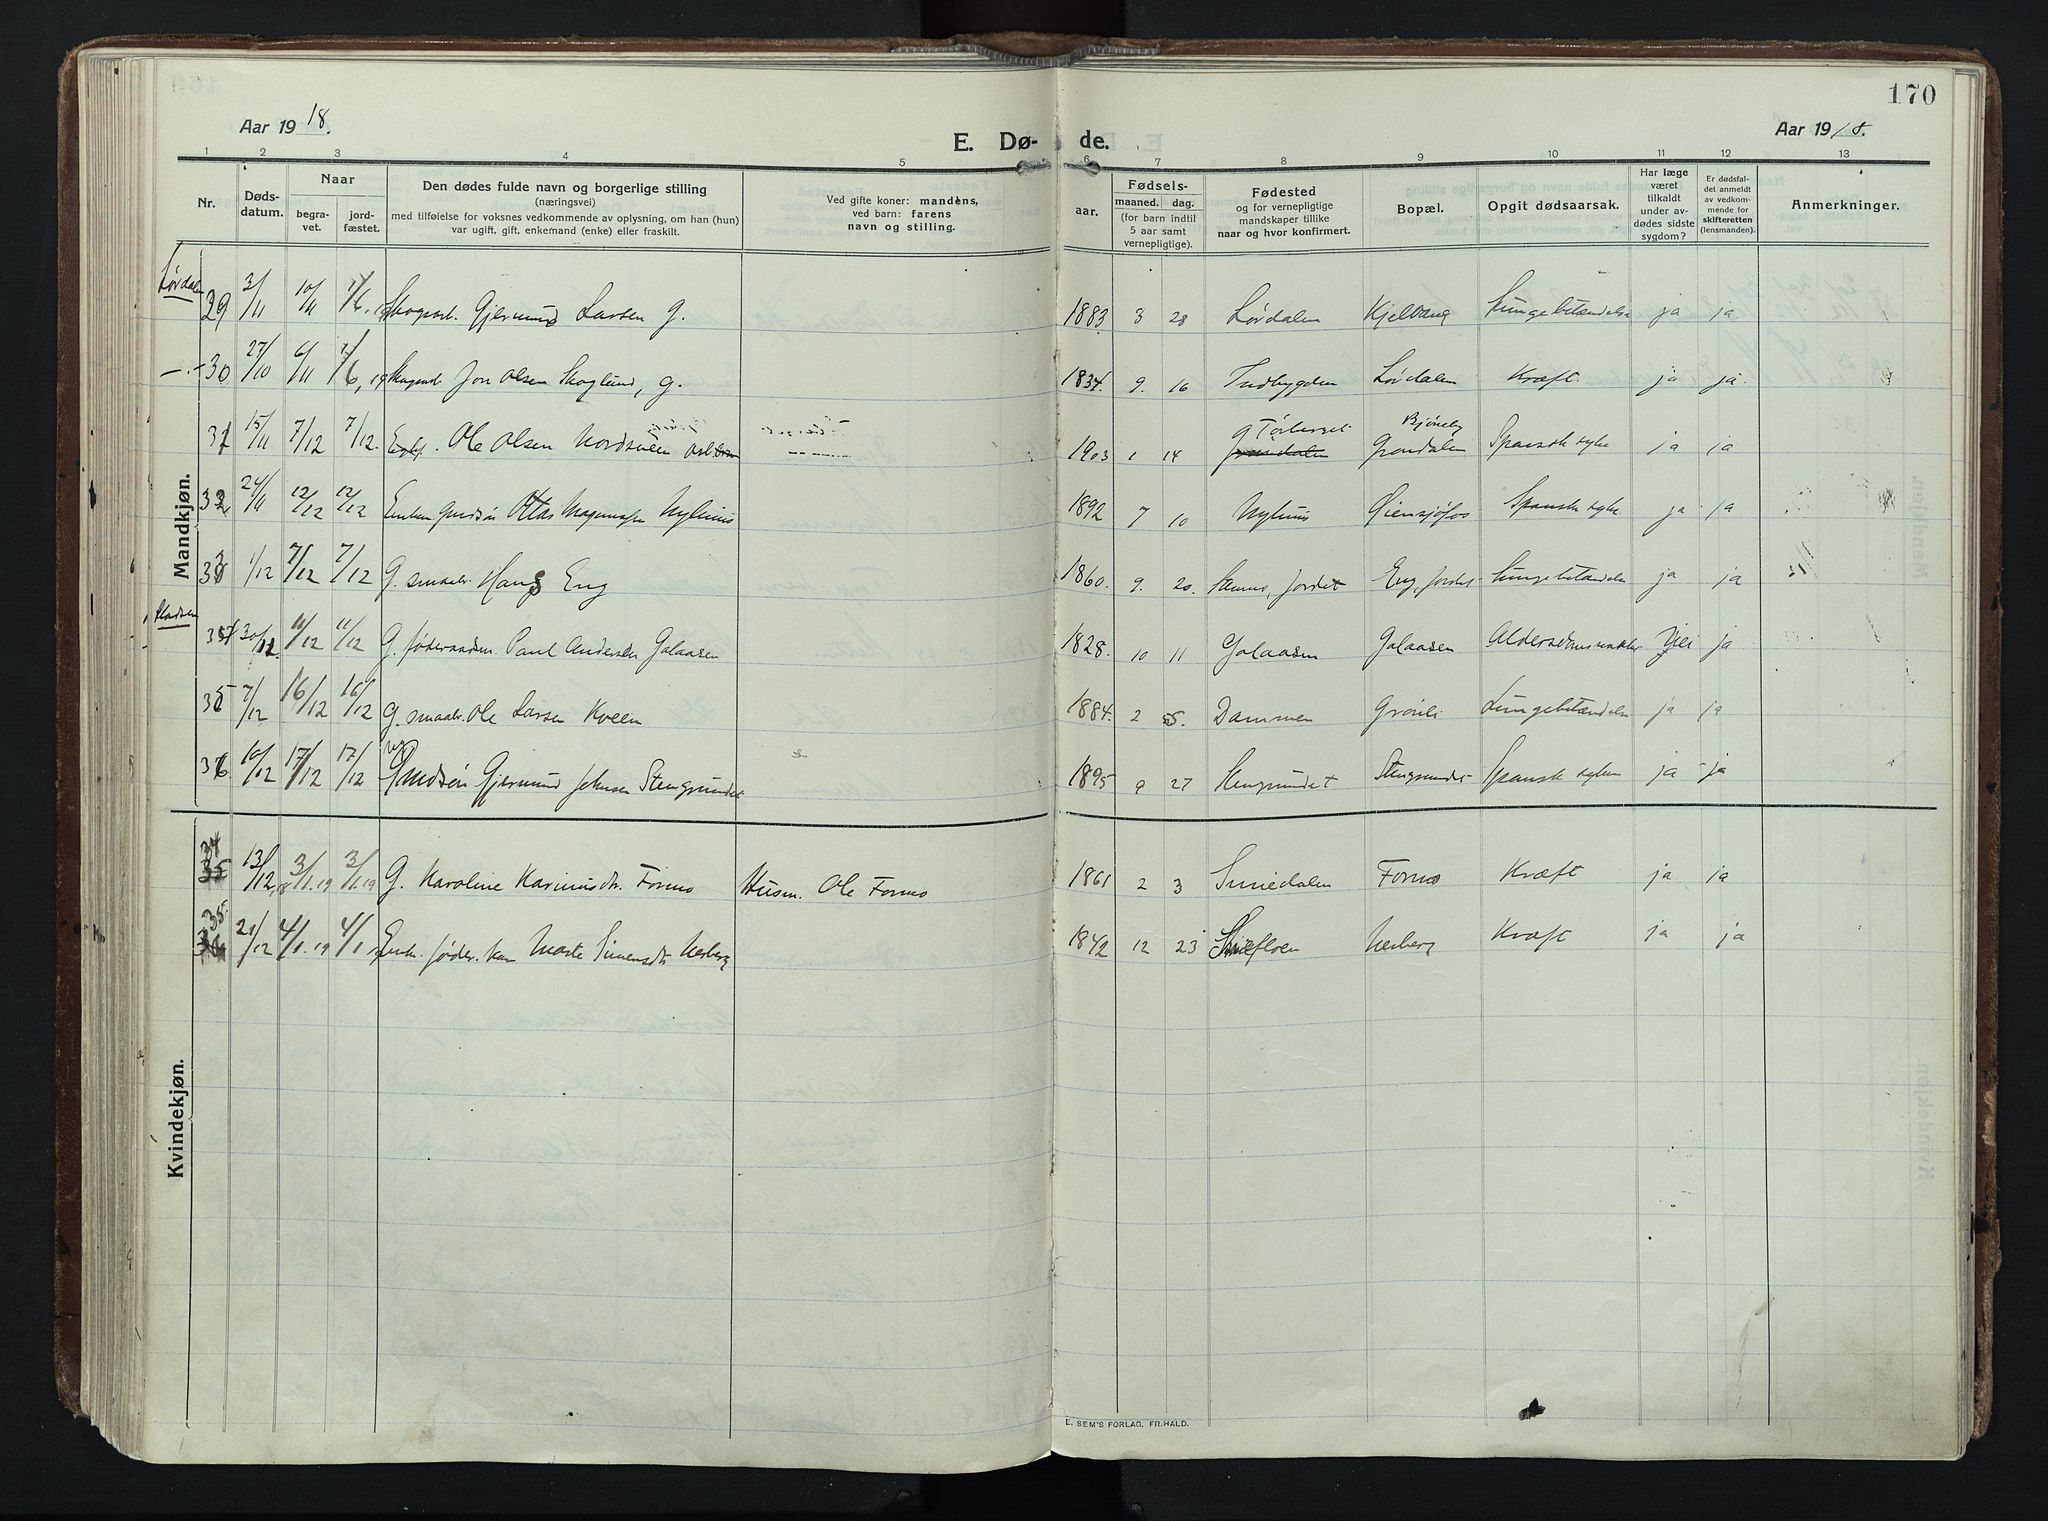 170
Aar 19 18.
E. Dø- de.
Aar 19 18.
1 2 3 4 5 6 7 8 9 10 11 12 13
Nr.
Døds-
datum.
Naar
begra-
vet.
jord-
fæstet.
Den dødes fulde navn og borgerlige stilling
(næringsvei)
med tilføielse for voksnes vedkommende av oplysning, om han (hun)
var ugift, gift, enkemand (enke) eller fraskilt.
Ved gifte koner: mandens,
ved barn: farens
navn og stilling.
aar.
Fødsels-
maaned. dag.
(for barn indtil
5 aar samt
vernepligtige).
Fødested
og for vernepligtige
mandskaper tillike
naar og hvor konfirmert.
Bopæl.
Opgit dødsaarsak.
Har læge
været
tilkaldt
under av-
dødes sidste
sygdom?
Er dødsfal-
det anmeldt
av vedkom-
mende for
skifteretten
(lensmanden).
Anmerkninger.
Mandkjøn.
Lørdalen
29 3/11 10/11 1/6, 19 Skogsarb. Gjermund Larsen G. 1883 3 28 Lørdalen Kjelvang Lungebetændelse ja ja
-"- 30 27/10 6/11 1/6, 19 Skogsarb. Jon Olsen Skoglund, g. 1834. 9. 16 Indbygden Lørdalen Kræft. ja ja.
31 15/11 7/12 7/12. Ole Olsen Nordsveen 1903 1 14 Grøndalen ja ja
32 24/11 12/12 12/12 Magnussen Nyhuus 1892 7 10 Nyhuus Øiensjøfos Spansk syke ja ja
33 1/12 7/12 7/12 G. smaabr. Hans Eng 1860. 9. 20. Stenmo, Jordet Eng, Jordet Lungebetændelse ja ja
34 30/12. 11/12 11/12 G. føderaadsm. Paul Andersen Galaasen 1828. 10 11 Galaasen Galaasen Alderdomssvakhet Nei ja
35 7/12 16/12 16/12 G. smaabr. Ole Larsen Kveen 1884. 2 5. Dammen Grønli Lungebetændelse ja ja
36 10/12 17/12 17/12 ug Grudsøn Gjermund Johnsen Stengrundet 1895 9 27 Stengrundet Stengrundet Spansk syken ja ja
Kvindekjøn.
34 13/12 18 3/1.19 3/1.19 G. Karoline Karinusdtr. Formo Husm. Ole Formo 1861 2 3 Furuedalen Formo Kræft ja ja
35. 21/12 4/1.19 4/1.19 Enke. føder. kone Marte Simensdtr. Nerberg 1842 12 23 Nerberg Kræft ja ja
E. SEM'S FORLAG, FR.HALD.